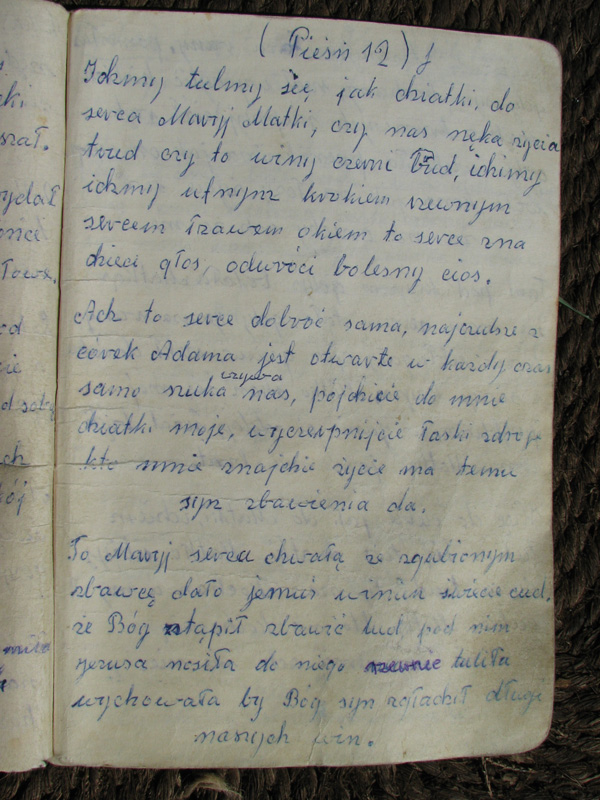 ( Pieśń 12 )
Idzmy tulmy się jak dziatki, do
serca Maryj Matki, czy nas nęka życia
trud czy to winy czerni brud, idzimy
idzmy ufnym krokiem rzewnym
sercem łzawem okiem to serce zna
dzieci głos, odwróci bolesny cios.
Ach to serce dobroć sama, najczulsze z
córek Adama jest otwarte w kazdy czas
samo szuka wzywa nas, pójdzicie do mnie
dziatki moje, wyczerpnijcie łaski zdroje
kto mnie znajdzie życie ma temu
syn zbawienia da.
To Maryj serca chwałą ze zgubionym
zbawcę dało jemuś winien świecie cud,
że Bóg stąpił zbawić lud pod nim
jezusa nosiła do niego tuliła
wychowała by Bóg syn zgładził długi
naszych win.
szał.
łowe.